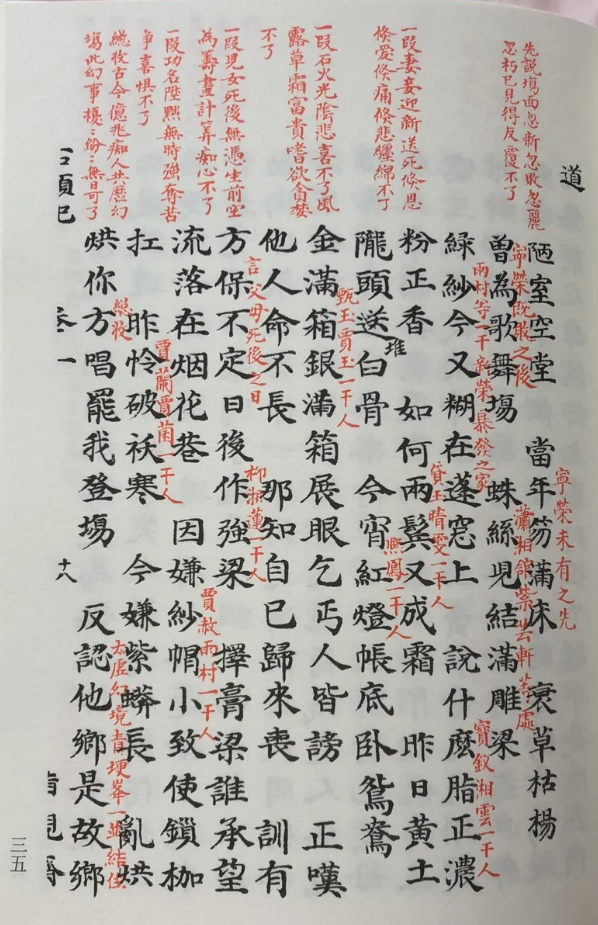 先說塲面忽新忽敗忽麗
忽朽已見得反覆不了
一段妻妾迎新送死倏恩
倏愛倏痛倏悲纏綿不了
一段石火光陰悲喜不了風
露草霜富貴嗜欲貪婪
不了
一段兒女死後無憑生前空
為籌畫計筭痴心不了
一段功名陞黜無時強奪苦
爭喜惧不了
總收古今億兆痴人共歷幻
塲此幻事擾〻紛〻無日可了
道
陋室空堂 當年笏滿床 衰草枯楊
寧榮未有之先
寧榮既敗之後
曾為歌舞塲 蛛絲兒結滿雕梁
瀟湘館紫芸軒等處
雨村等一干新榮暴發之家
綠紗今又糊在蓬窓上 說什麽脂正濃
寶釵湘雲一干人
粉正香 如何兩鬂又成霜 昨日黄土
黛玉晴雯一干人
隴頭送白骨 今宵紅燈帳底卧鴛鴦
堆
熙鳳一干人
金滿箱銀滿箱展眼乞丐人皆謗 正嘆
甄玉賈玉一干人
他人命不長 那知自己歸來喪 訓有
言父母死後之日
方保不定日後作強梁 擇膏梁誰承望
柳湘蓮一干人
流落在烟花巷 因嫌紗帽小致使鎖枷
賈赦雨村一干人
扛 昨怜破袄寒 今嫌紫蟒長 亂烘
賈蘭賈菌一干人
烘你方唱罷我登塲 反認他鄉是故鄉
總收
太虛幻境青埂峯一並結住
石頭記 卷一 十八
三五